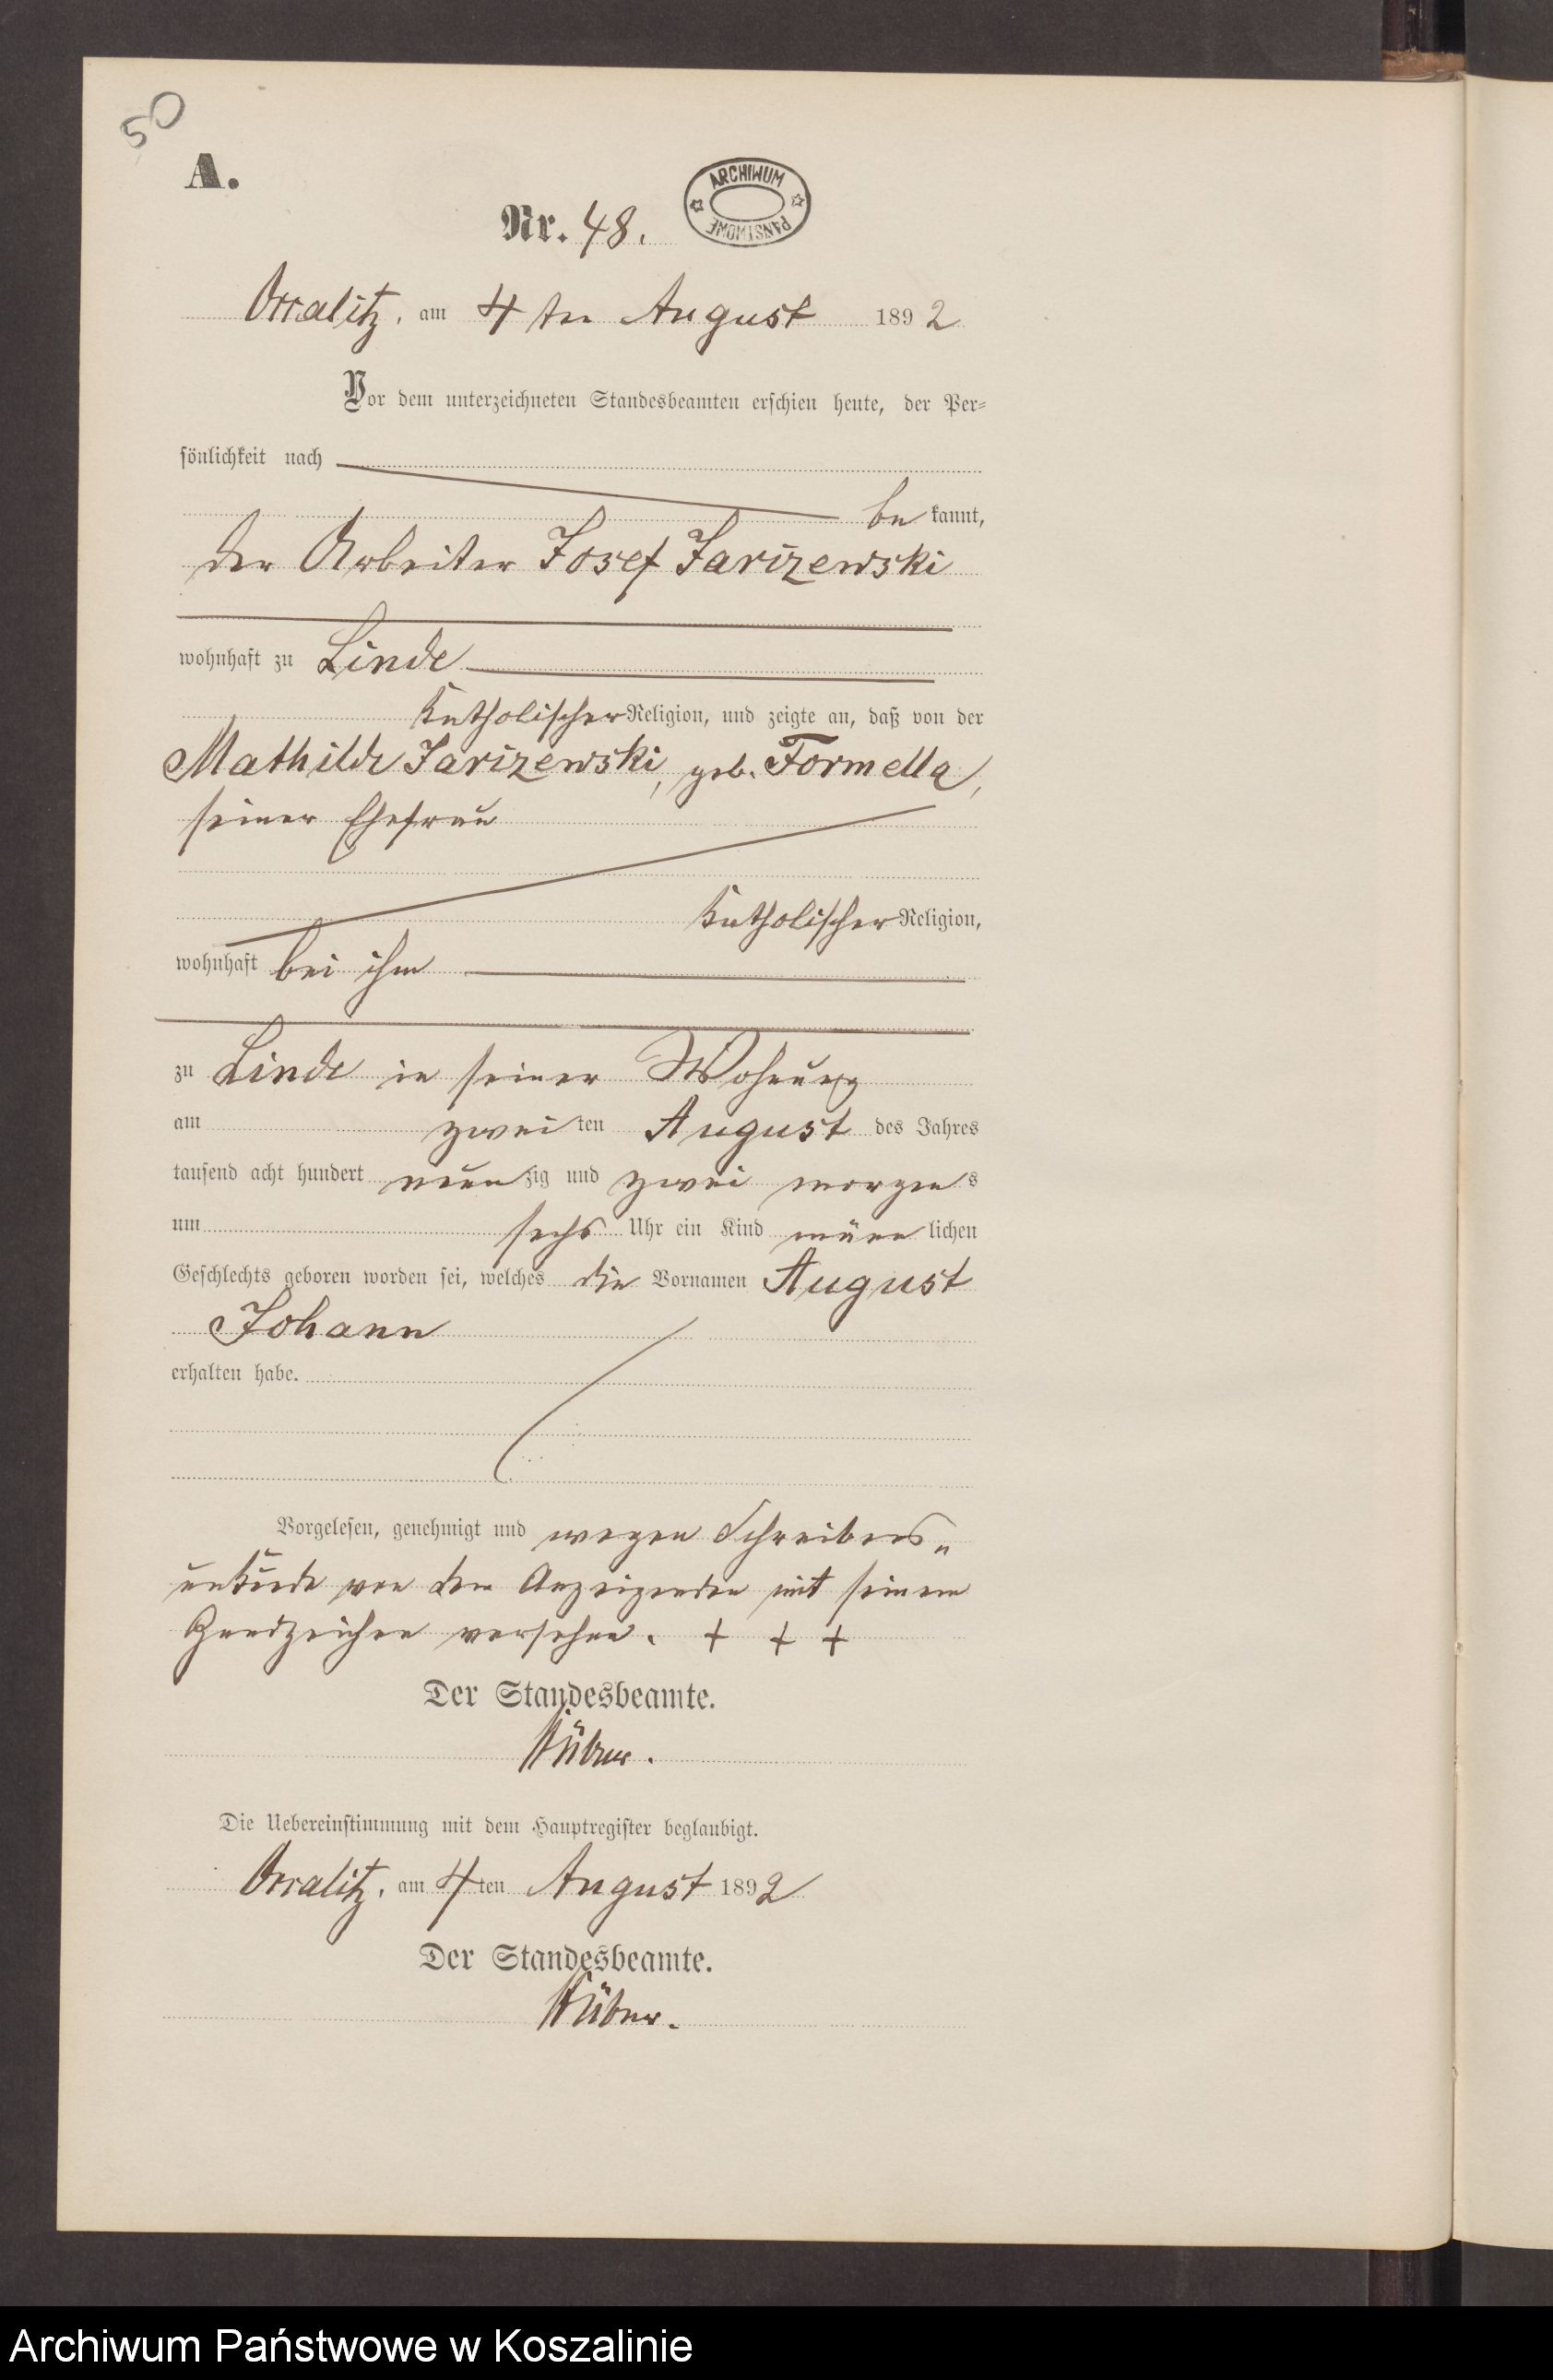 50
A.
Nr. 48.
ARCHIWUM PAŃSTWOWE
am 4ten August 1892
Vor dem unterzeichneten Standesbeamten erschien heute, der Per-
sönlichkeit nach
bekannt,
der Arbeiter Josef Jarizewski
wohnhaft zu Linde
katholischer Religion, und zeigte an, daß von der
Mathilde Jarizewski, geb. Formella,
seiner Ehefrau
katholischer Religion,
wohnhaft bei ihm
zu Linde in seiner Wohnung
am zweiten August des Jahres
tausend acht hundert neunzig und zwei morgens
um sechs Uhr ein Kind männlichen
Geschlechts geboren worden sei, welches die Vornamen August
Johann
erhalten habe.
Vorgelesen, genehmigt und wegen Schreibens„
unkunde von dem Anzeigenden mit seinem
Handzeichen versehen. + + +
Der Standesbeamte.
Die Uebereinstimmung mit dem Hauptregister beglaubigt.
am 4ten August 1892
Der Standesbeamte.
Archiwum Państwowe w Koszalinie